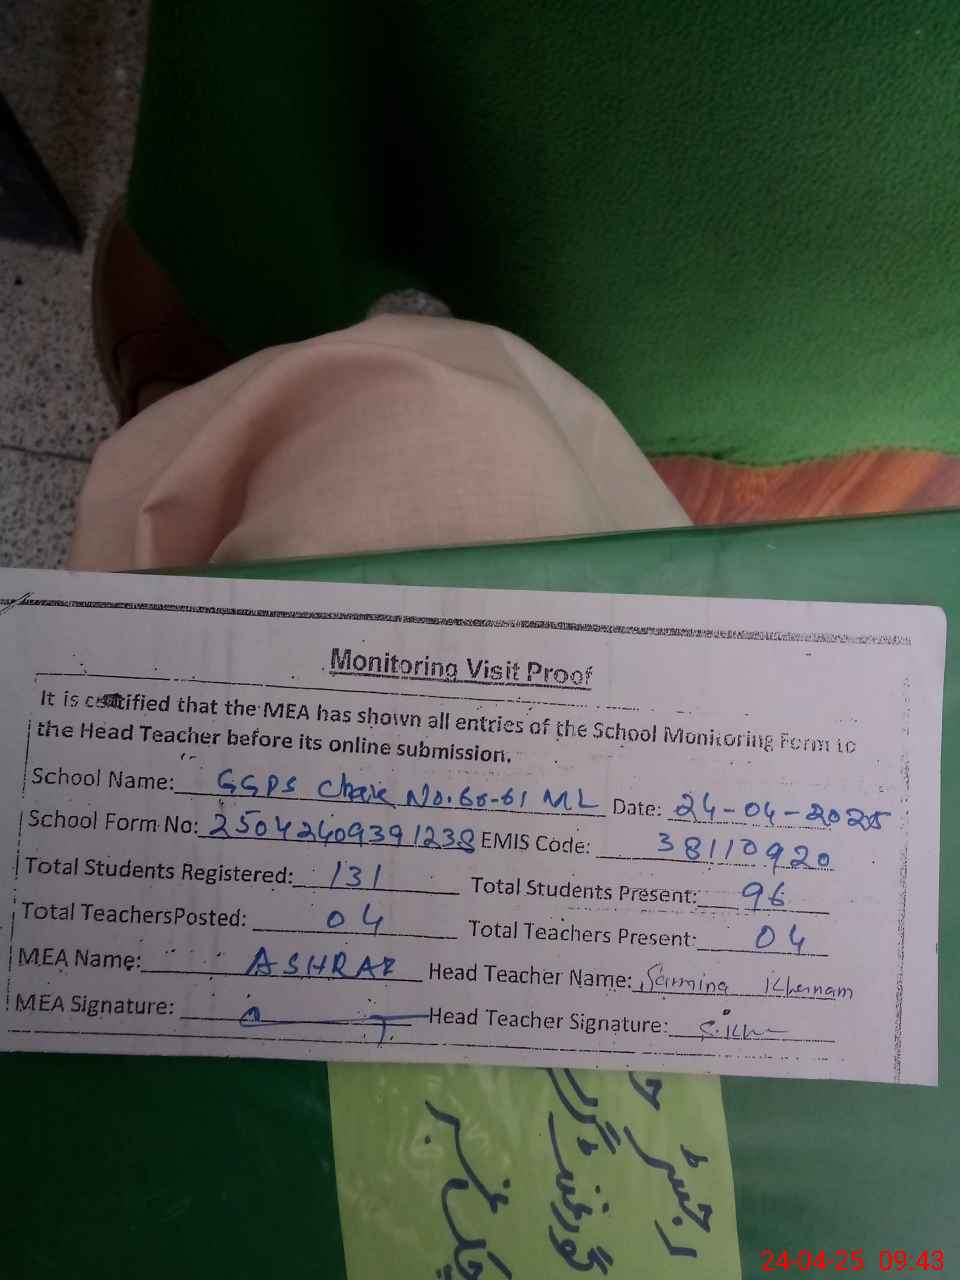 Monitoring Visit Proof
It is certified that the MEA has shown all entries of the School Monitoring Form to
the Head Teacher before its online submission.
School Name: GGPS Chak No. 60-61 ML Date: 24-04-2025
School Form No: 25042409391238 EMIS Code: 38110920
Total Students Registered: 131 Total Students Present: 96
Total TeachersPosted: 04 Total Teachers Present: 04
MEA Name: ASHRAF Head Teacher Name: Sarmina Khannam
MEA Signature: Head Teacher Signature: S.Kh
رجسٹر
گورنمنٹ گرلز
چک نمبر
24-04-25 09:43